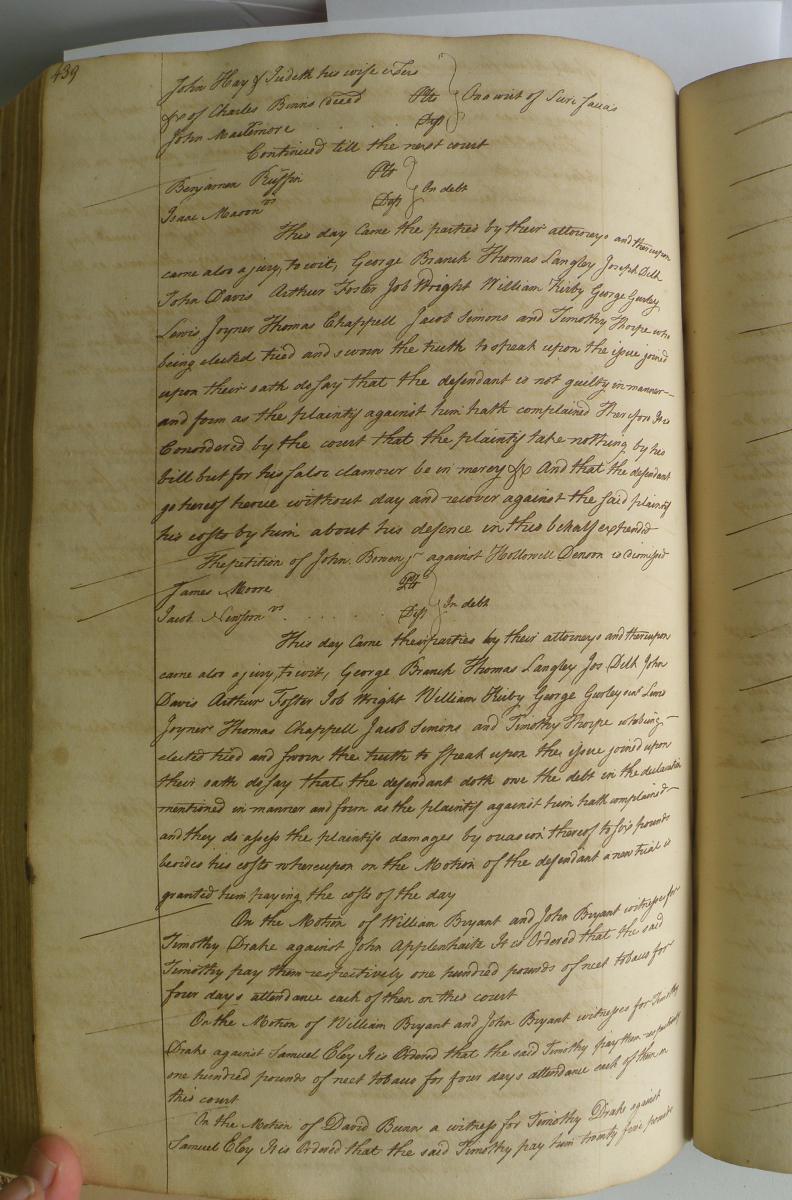 439
John Hay & Judeth his wife exors
&c of Charles Binns deced Plts
On a writ of Scire facias
John Mackmore . . . Deft
Continued till the next court
Benjamin Ruffin Plt
vs In debt
Isaac Mason Deft
This day Came the parties by their attorneys and thereupon
came also a jury, to wit, George Branch Thomas Langley Joseph Delk
John Davis Arthur Foster Job Wright William Kirby George Gurley
Lewis Joyner Thomas Chappell Jacob Simons and Timothy Thorpe who
being elected tried and sworn the truth to speak upon the issue joined
upon their oath do say that the defendant is not guilty in manner
and form as the plaintif against him hath complained Therefore It is
Considered by the court that the plaintif take nothing by his
bill but for his false clamour be in mercy &c And that the defendant
go hereof hence without day and recover against the said plaintif
his costs by him about his defence in this behalf expended
The petition of John Bowen jr against Hollowell Denson is dismissed
James Moore Plt
vs In debt
Jacob Newsom . . . Deft
This day Came the parties by their attorneys and thereupon
came also a jury, to wit, George Branch Thomas Langley Jos Delk John
Davis Arthur Foster Job Wright William Kirby George Gurley Lewis
Joyner Thomas Chappell Jacob Simons and Timothy Thorpe who being
elected tried and sworn the truth to speak upon the issue joined upon
their oath do say that the defendant doth owe the debt in the declaration
mentioned in manner and form as the plaintif against him hath complained
and they do assess the plaintifs damages by occasion thereof to six pounds
besides his costs whereupon on the Motion of the defendant a new trial is
granted him paying the costs of the day
On the Motion of William Bryant and John Bryant witnesses for
Timothy Drake against John Applewhaite It is Ordered that the said
Timothy pay them respectively one hundred pounds of neet tobacco for
four days attendance each of them on this court
On the Motion of William Bryant and John Bryant witnesses for Timothy
Drake against Samuel Eley It is Ordered that the said Timothy pay them respectively
one hundred pounds of neet tobacco for four days attendance each of them on
this court
On the Motion of David Bunn a witness for Timothy Drake against
Samuel Eley It is Ordered that the said Timothy pay him twenty five pounds